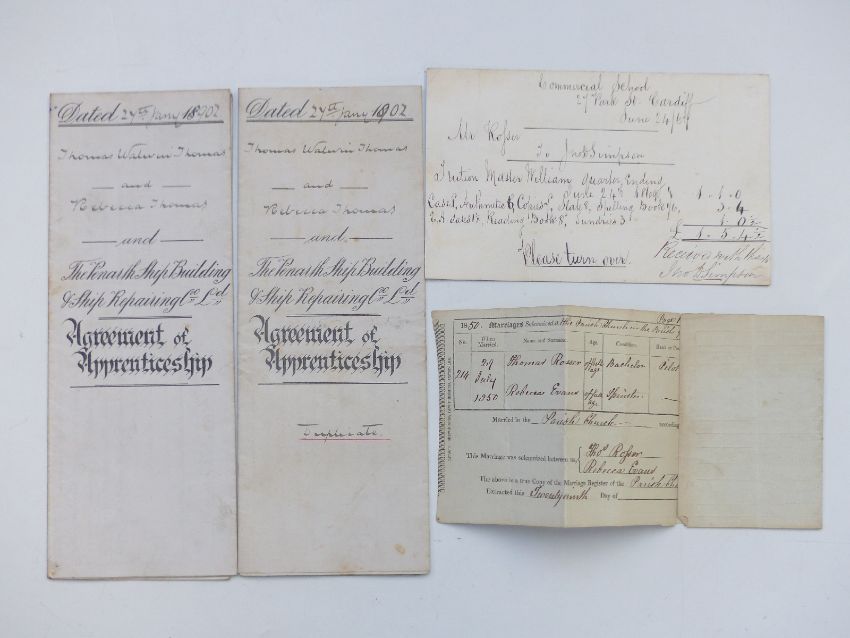 Dated 24th Jany 1902
Thomas Watwin Thomas
and
Rebecca Thomas
and
The Penarth Ship Building
& Ship Repairing Co Ld
Agreement of
Apprenticeship
Dated 24th Jany 1902
Thomas Watwin Thomas
and
Rebecca Thomas
and
The Penarth Ship Building
& Ship Repairing Co Ld
Agreement of
Apprenticeship
Duplicate
Commercial School
27 Park St Cardiff
June 24/6
Mr Rosser
To Jno Simpson
Tuition Master William quarter Ending
June 24th 1 . 1 . 0
Copies, Slate, Spelling Book 3 . 4
Reading Book 8, Sundries 3 1 . 0½
£ 1 . 5 . 4½
Please turn over
Received with thanks
Jno Simpson
1850. Marriages Solemnized at the Parish Church in the Parish
No. When Married. Name and Surname. Age. Condition. Rank or
214 29 July 1850 Thomas Rosser of full age Bachelor Pilot
Rebecca Evans of full age Spinster
Married in the Parish Church according
This Marriage was solemnized between us, Thos Rosser
Rebecca Evans
The above is a true Copy of the Marriage Register of the Parish
Extracted this Twentyninth Day of